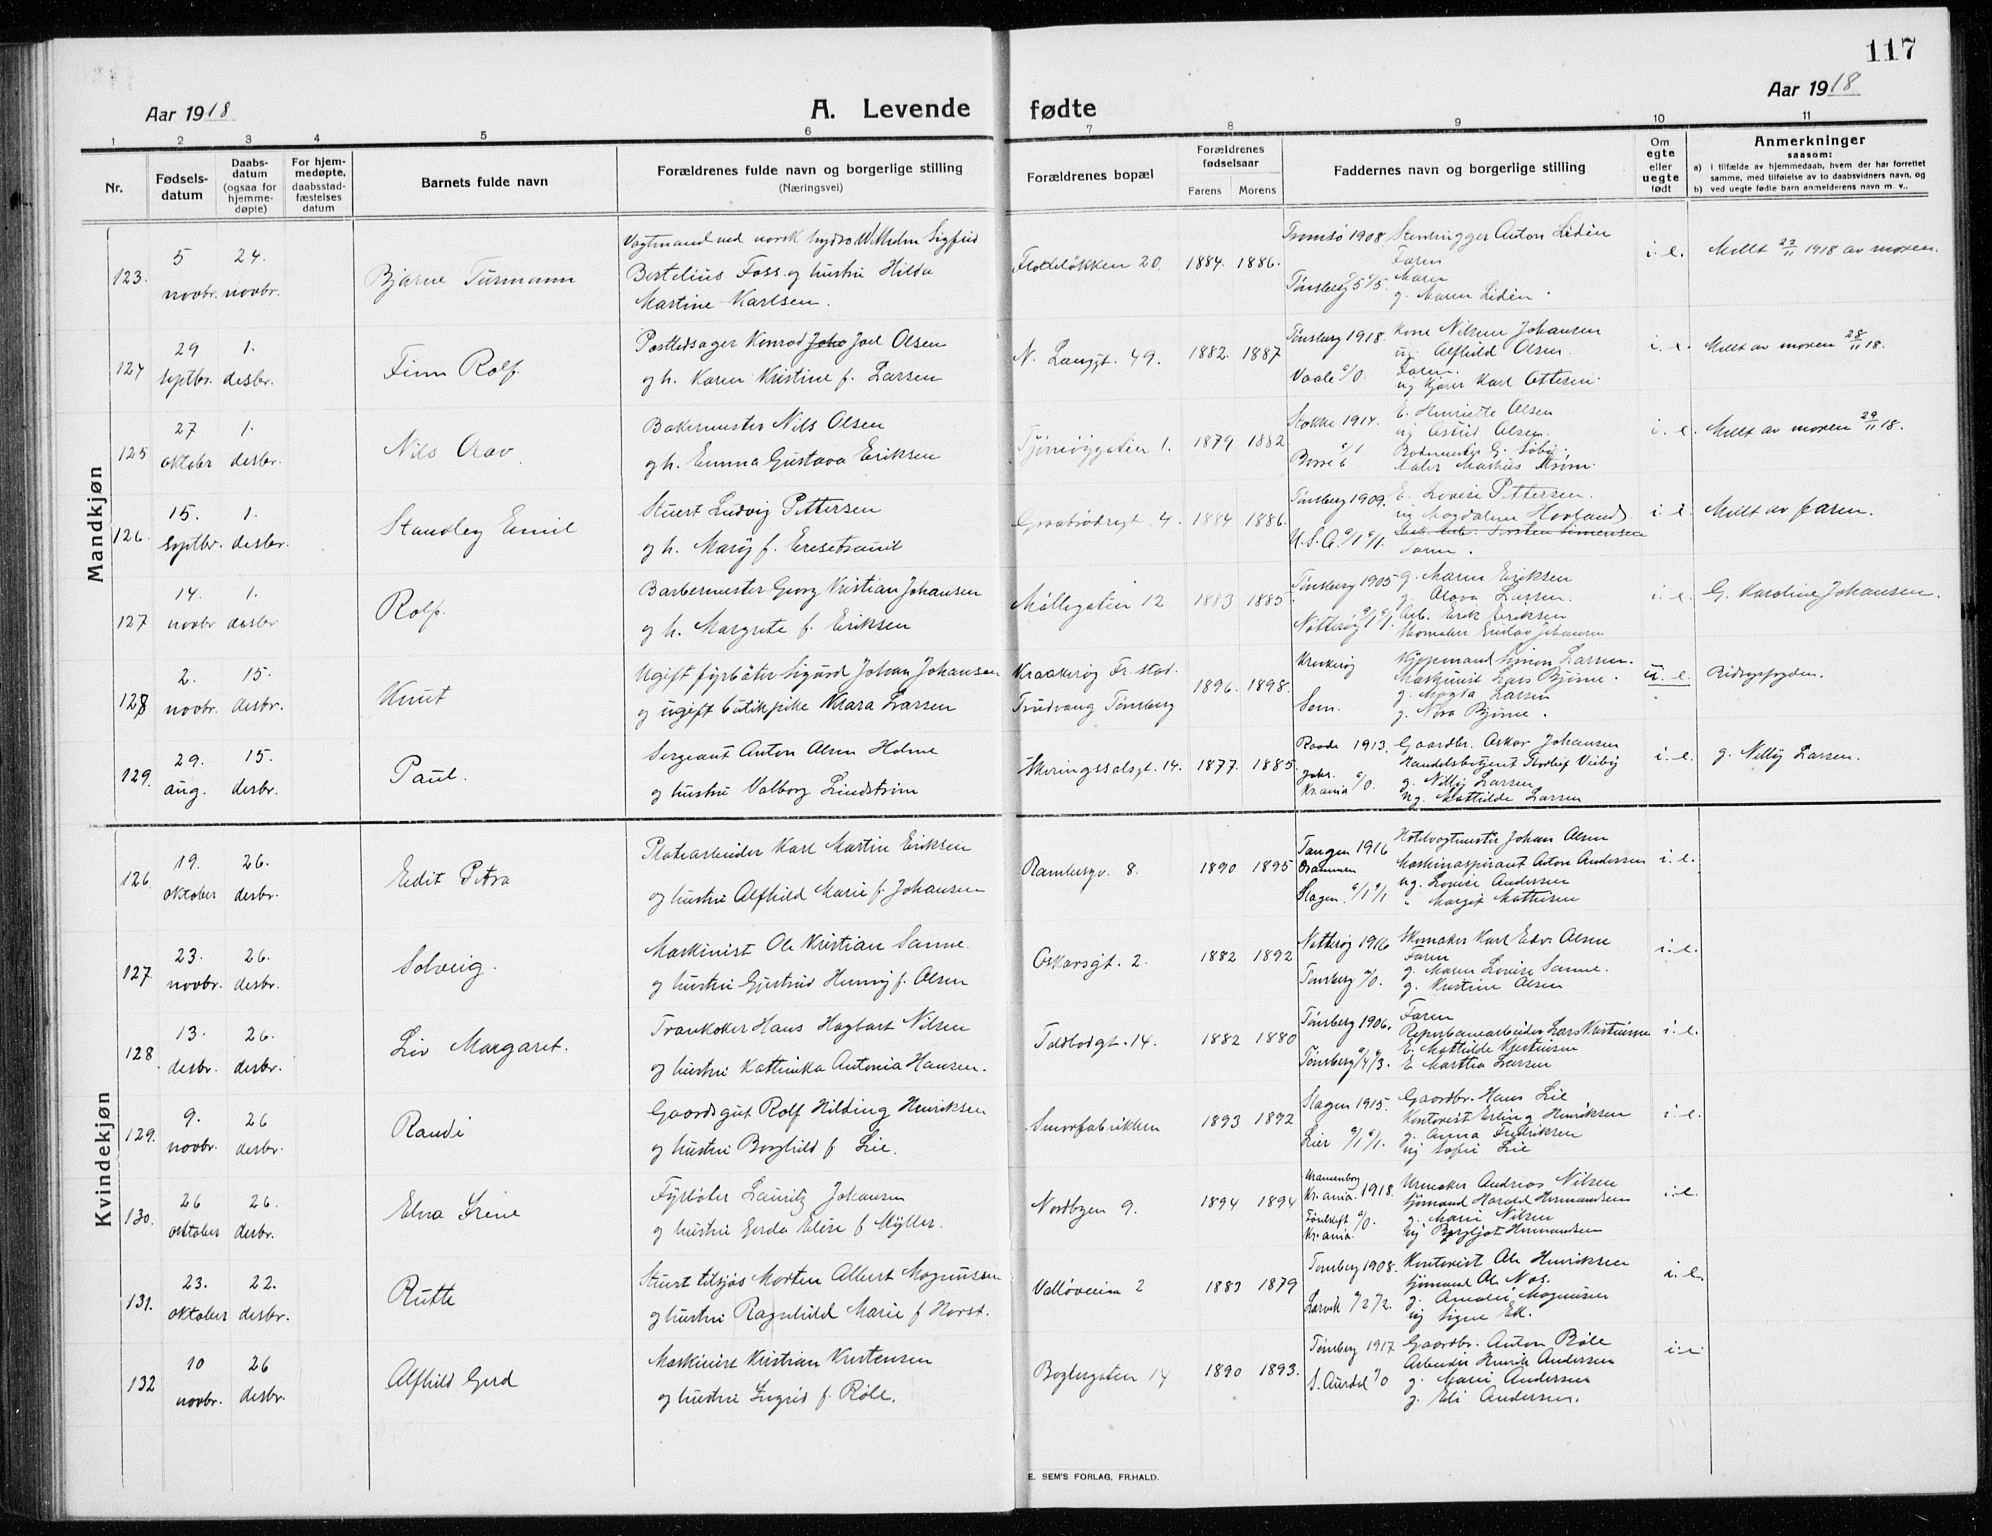 117
Aar 1918
A. Levende fødte
Aar 1918
1 2 3 4 5 6 7 8 9 10 11
Nr.
Fødsels-
datum
Daabs-
datum
(ogsaa for
hjemme-
døpte)
For hjem-
medøpte,
daabsstad-
fæstelses
datum
Barnets fulde navn
Forældrenes fulde navn og borgerlige stilling
(Næringsvei)
Forældrenes bopæl
Forældrenes
fødselsaar
Farens Morens
Faddernes navn og borgerlige stilling
Om
egte
eller
uegte
født
Anmerkninger
saasom:
a) i tilfælde av hjemmedaab, hvem der har forrettet
samme, med tilføielse av to daabsvidners navn, og
b) ved uegte fødte barn anmelderens navn m. v..
Mandkjøn
123. 5 novbr. 24. novbr.
Bjarne
Vagtmand ved norsk hydro Wilhelm Sigfrid
Bertelius Foss og hustru Hilda
Martine Karlsen.
20. 1884. 1886.
Tromsö 1908. Stenhugger Anton Lidén
Faren
Tønsberg 5/5. Maren
g. Maren Lidén.
i. e. Meldt 23/11 1918 av moren.
124 29 septbr. 1. desbr.
Finn Rolf.
Konrad Joel Olsen
og h. Karen Kristine f. Larsen
N. Langgt. 49. 1882. 1887
Tønsberg 1918. Kone Nilsine Johansen
ug. Alfhild Olsen.
Vaale 0/0. Faren.
Karl Ottesen.
i. e. Meldt av moren 28/11 18.
125 27 oktober 1. desbr.
Nils Olav
Bakermester Nils Olsen
og h. Emma Gustava Eriksen
1. 1879 1882
Stokke 1914. E. Henriette Olsen
ug Astrid Olsen.
Borre
Maler Markus Strøm.
i. e. Meldt av moren 29/11 18.
126. 15. septbr. 1. desbr.
Standley Emil
Stuert Ludvig Pettersen
og h. Mary f.
4. 1884 1886.
Tønsberg 1909. E. Lovise Pettersen.
ug Magdalene Hovland
U.S.A. 0/1 0/1.
Faren.
i. e. Meldt av faren.
127 14. novbr 1. desbr
Rolf.
Barbermester Georg Kristian Johansen
og h. Margrete f. Eriksen
Møllegaten 12 1883 1885
Tønsberg 1905 g. Maren Eriksen
g. Olava Larsen.
Nøtterøy 0/1 0/1. Arb. Erik Eriksen
Skomaker Gustav Johansen
i. e. G. Karoline Johansen.
128 2. novbr. 15. desbr.
Knut
Ugift fyrbøter Sigurd Johan Johansen
og ugift butikpike Klara Larsen
Kraakerøy Fr.stad.
Trudvang Tønsberg
1896. 1898.
Krakerøy Kjøpmand Simon Larsen.
Maskinist Lars Bjørne.
Sem. g. Magda Larsen
g. Nora Bjørne.
u. e. Bidragsfogden.
129. 29. aug. 15. desbr.
Paul.
Sergeant Anton Olsen Holme
og hustru Valborg Lindstrøm
Skiringssalsgt. 14. 1877. 1885.
Raade 1913. Gaardbr. Oskar Johansen
Kr.ania 0/0. g. Nelly Larsen
ug. Mathilde Larsen
i. e. g. Nelly Larsen.
Kvindekjøn
126. 19. oktober 26. desbr.
Edit Petra
Platearbeider Karl Martin Eriksen
og hustru Alfhild Marie f. Johansen
Rambergv. 8. 1890 1895
Tangen 1916 Johan Olsen
Drammen Maskinaspirant Anton Andersen
Slagen. 0/1 0/1 ug. Lovise Andersen
" Margit Mathisen
i. e.
127. 23. novbr. 26. desbr.
Solveig.
Maskinist Ole Kristian Sanne.
og hustru Gjertrud Henny f. Olsen
Oskarsgt. 2. 1882 1892
Nøtterøy 1916 Skomaker Karl Edv. Olsen
Faren
Tønsberg g. Maren Lovise Sanne.
g. Kristine Olsen
i. e.
128 13. desbr. 26. desbr.
Liv Margaret.
Trankoker Hans Hagbart Nilsen
og hustru Kathinka Antonia Hansen.
Toldbodgt. 14. 1882 1880
Tønsberg 1906. Faren
Reperbanearbeider Lars Kristiansen
Tønsberg E. Mathilde Kristiansen
E. Martha Larsen
i. e.
129. 9. novbr. 26 desbr.
Randi
Gaardsgut Rolf Hilding Henriksen
og hustru Borghild f. Lie.
Smørfabrikken 1893 1892
Slagen 1915. Gaardbr. Hans Lie
Kontorist Erling Henriksen
Lier 0/1 0/1. g. Anna Fredriksen
ug Sofie Lie
i. e.
130. 26 oktober 26. desbr.
Elna Irene
Fyrbøter Lauritz Johansen
og hustru Gerda Elise f Myller.
Nordbyen 9. 1894 1894
Kr.ania. 1918. Urmaker Andreas Nilsen
Sjømand Harald Hermandsen
g. Marie Nilsen
Kr.ania. ug Bergljot Hermandsen
i. e.
131. 23. oktober 22. desbr.
Ruth
Stuert tilsjøs Morten Albert Magnussen
og hustru Ragnhild Marie f Horst.
Valløveien 2 1883 1879
Tønsberg 1908. Kontorist Ole Henriksen
Sjømand Ole Næs.
Larvik 0/2 0/2. g. Amalie Magnussen
ug Signe Ek.
i. e.
132 10 novbr. 26 desbr.
Alfhild Gerd
Maskinist Kristian Kristensen
og hustru Ingrid f. Røle.
Boglergaten 14 1890 1893.
Tønsberg 1917 Gaardbr. Anton Røle
Arbeider Henrik Andersen
S. Aurdal 0/0 g. Marie Andersen
g. Eli Andersen.
i. e.
E. SEM'S FORLAG, FR.HALD.